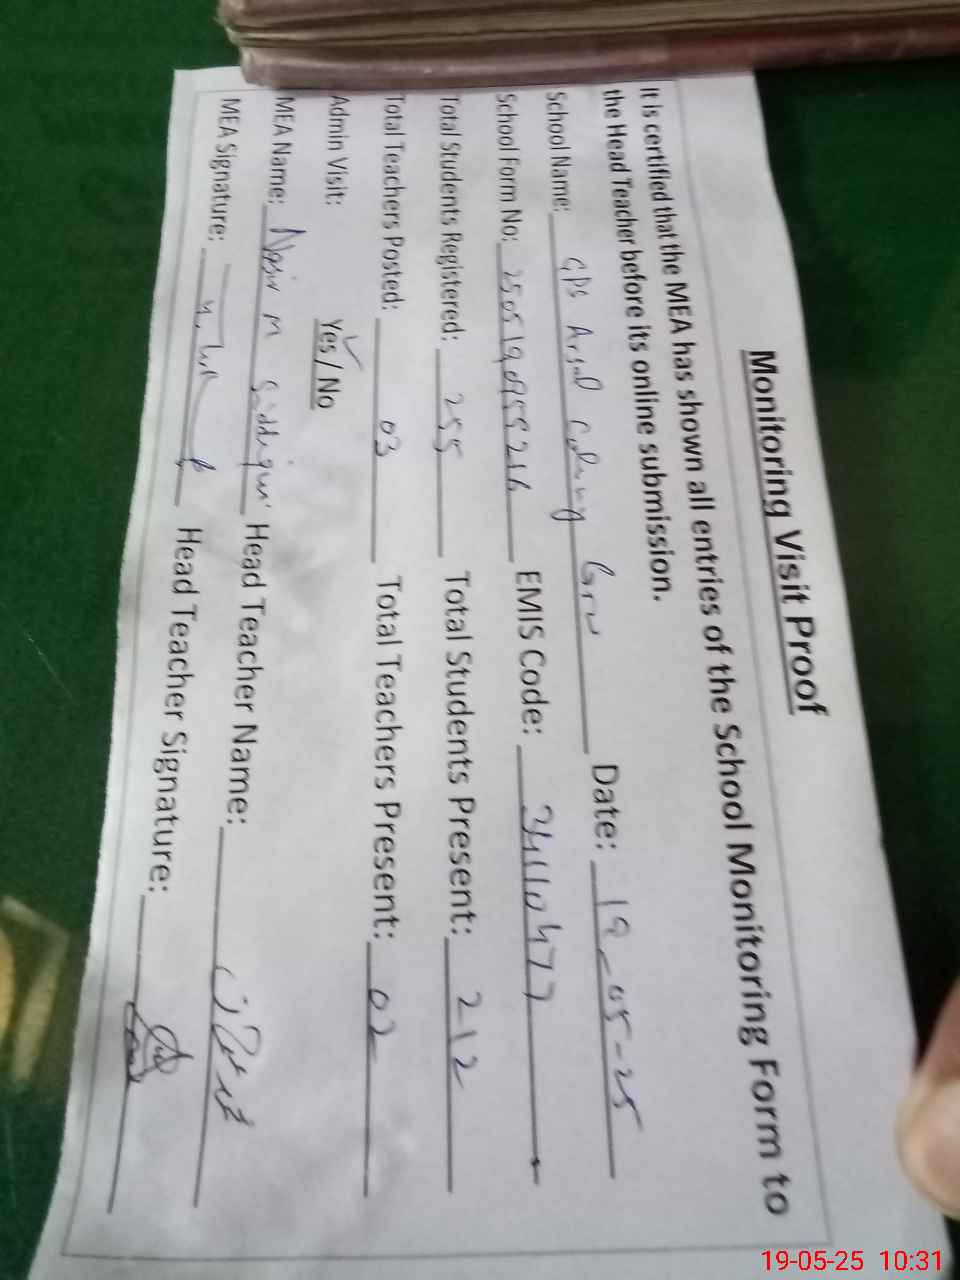 Monitoring Visit Proof
It is certified that the MEA has shown all entries of the School Monitoring Form to
the Head Teacher before its online submission.
School Name: GPS Arsal Colony Grw Date: 19-05-25
School Form No: 2505190955216 EMIS Code: 34110477
Total Students Registered: 255 Total Students Present: 212
Total Teachers Posted: 03 Total Teachers Present: 02
Admin Visit: Yes / No
MEA Name: Nasir M Siddiqui Head Teacher Name:
MEA Signature: Head Teacher Signature:
19-05-25 10:31